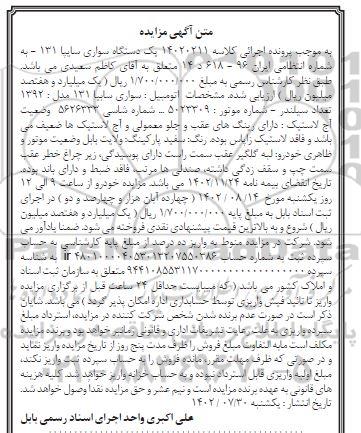 متن آگهی مزایده
به موجب پرونده اجرائی کلاسه ۱۴۰۲۰۲۱۱ یک دستگاه سواری سایپا ۱۳۱ - به
شماره انتظامی ایران ۹۶ - ۶۱۸ د ۱۴ متعلق به آقای کاظم سعیدی می باشد.
طبق نظر کارشناس رسمی به مبلغ ۱/۷۰۰/۰۰۰/۰۰۰ ریال ( یک میلیارد و هفتصد
میلیون ریال ) ارزیابی شده. مشخصات اتومبیل : سواری سایپا ۱۳۱ مدل : ۱۳۹۲
تعداد سیلندر - شماره موتور : ۵۰۲۳۳۰۹ ... شماره شاسی ۵۶۲۶۳۳۳ وضعیت
آج لاستیک : دارای رینگ های عقب و جلو معمولی و آج لاستیک ها ضعیف می
باشد و فاقد لاستیک زاپاس بوده. رنگ: سفید پارکینگ: ولایت بابل وضعیت موتور و
ظاهری خودرو: لبه گلگیر عقب سمت راست دارای پوسیدگی، زیر چراغ خطر عقب
سمت چپ و سقف زدگی داشته، صندلی ها مرتب، فاقد ضبط و دارای باند بوده.
تاریخ انقضای بیمه نامه ۱۴۰۲/۱۱/۲۴ می باشد. مزایده خودرو از ساعت ۹ الی ۱۲
روز یکشنبه مورخ ۱۴ / ۰۸ / ۱۴۰۲ ( چهارده آبان هزار و چهارصد و دو ) در اجرای
ثبت اسناد بابل به مبلغ پایه ۱/۷۰۰/۰۰۰/۰۰۰ ریال ( یک میلیارد و هفتصد میلیون
ریال ) شروع و به بالاترین قیمت پیشنهادی نقدی فروخته می شود. ضمنا یادآور می
شود. شرکت در مزایده منوط به واریز ده درصد از مبلغ پایه کارشناسی به حساب
سپرده ثبت به شماره حساب ir به شناسه
سپرده متعلق به سازمان ثبت اسناد
و املاک کشور می باشد ( که میبایست حداقل ۲۴ ساعت قبل از برگزاری مزایده
واریز تا تائید فیش واریزی توسط حسابداری اداره امکان پذیر گردد ) می باشد. شایان
ذکر است در صورت عدم برنده شدن شخص شرکت کننده در مزایده، استرداد مبلغ
سپرده واریزی به علت رعایت تشریفات اداری و قانونی زمانبر خواهد بود و برنده مزایده
مکلف است مابه التفاوت مبلغ فروش را ظرف مدت پنج روز از تاریخ مزایده واریز نماید
و در صورتی که ظرف مهلت مقرر، مانده فروش را به حساب سپرده ثبت واریز نکند،
مبلغ اولیه واریزی قابل استرداد نبوده و به حساب خزانه واریز خواهد شد. کلیه هزینه
های قانونی به عهده برنده مزایده است و نیم عشر و حق مزایده نقدا وصول خواهد شد.
تاریخ انتشار : یکشنبه ۱۴۰۲/۰۷/۳۰
علی اکبری واحد اجرای اسناد رسمی بابل